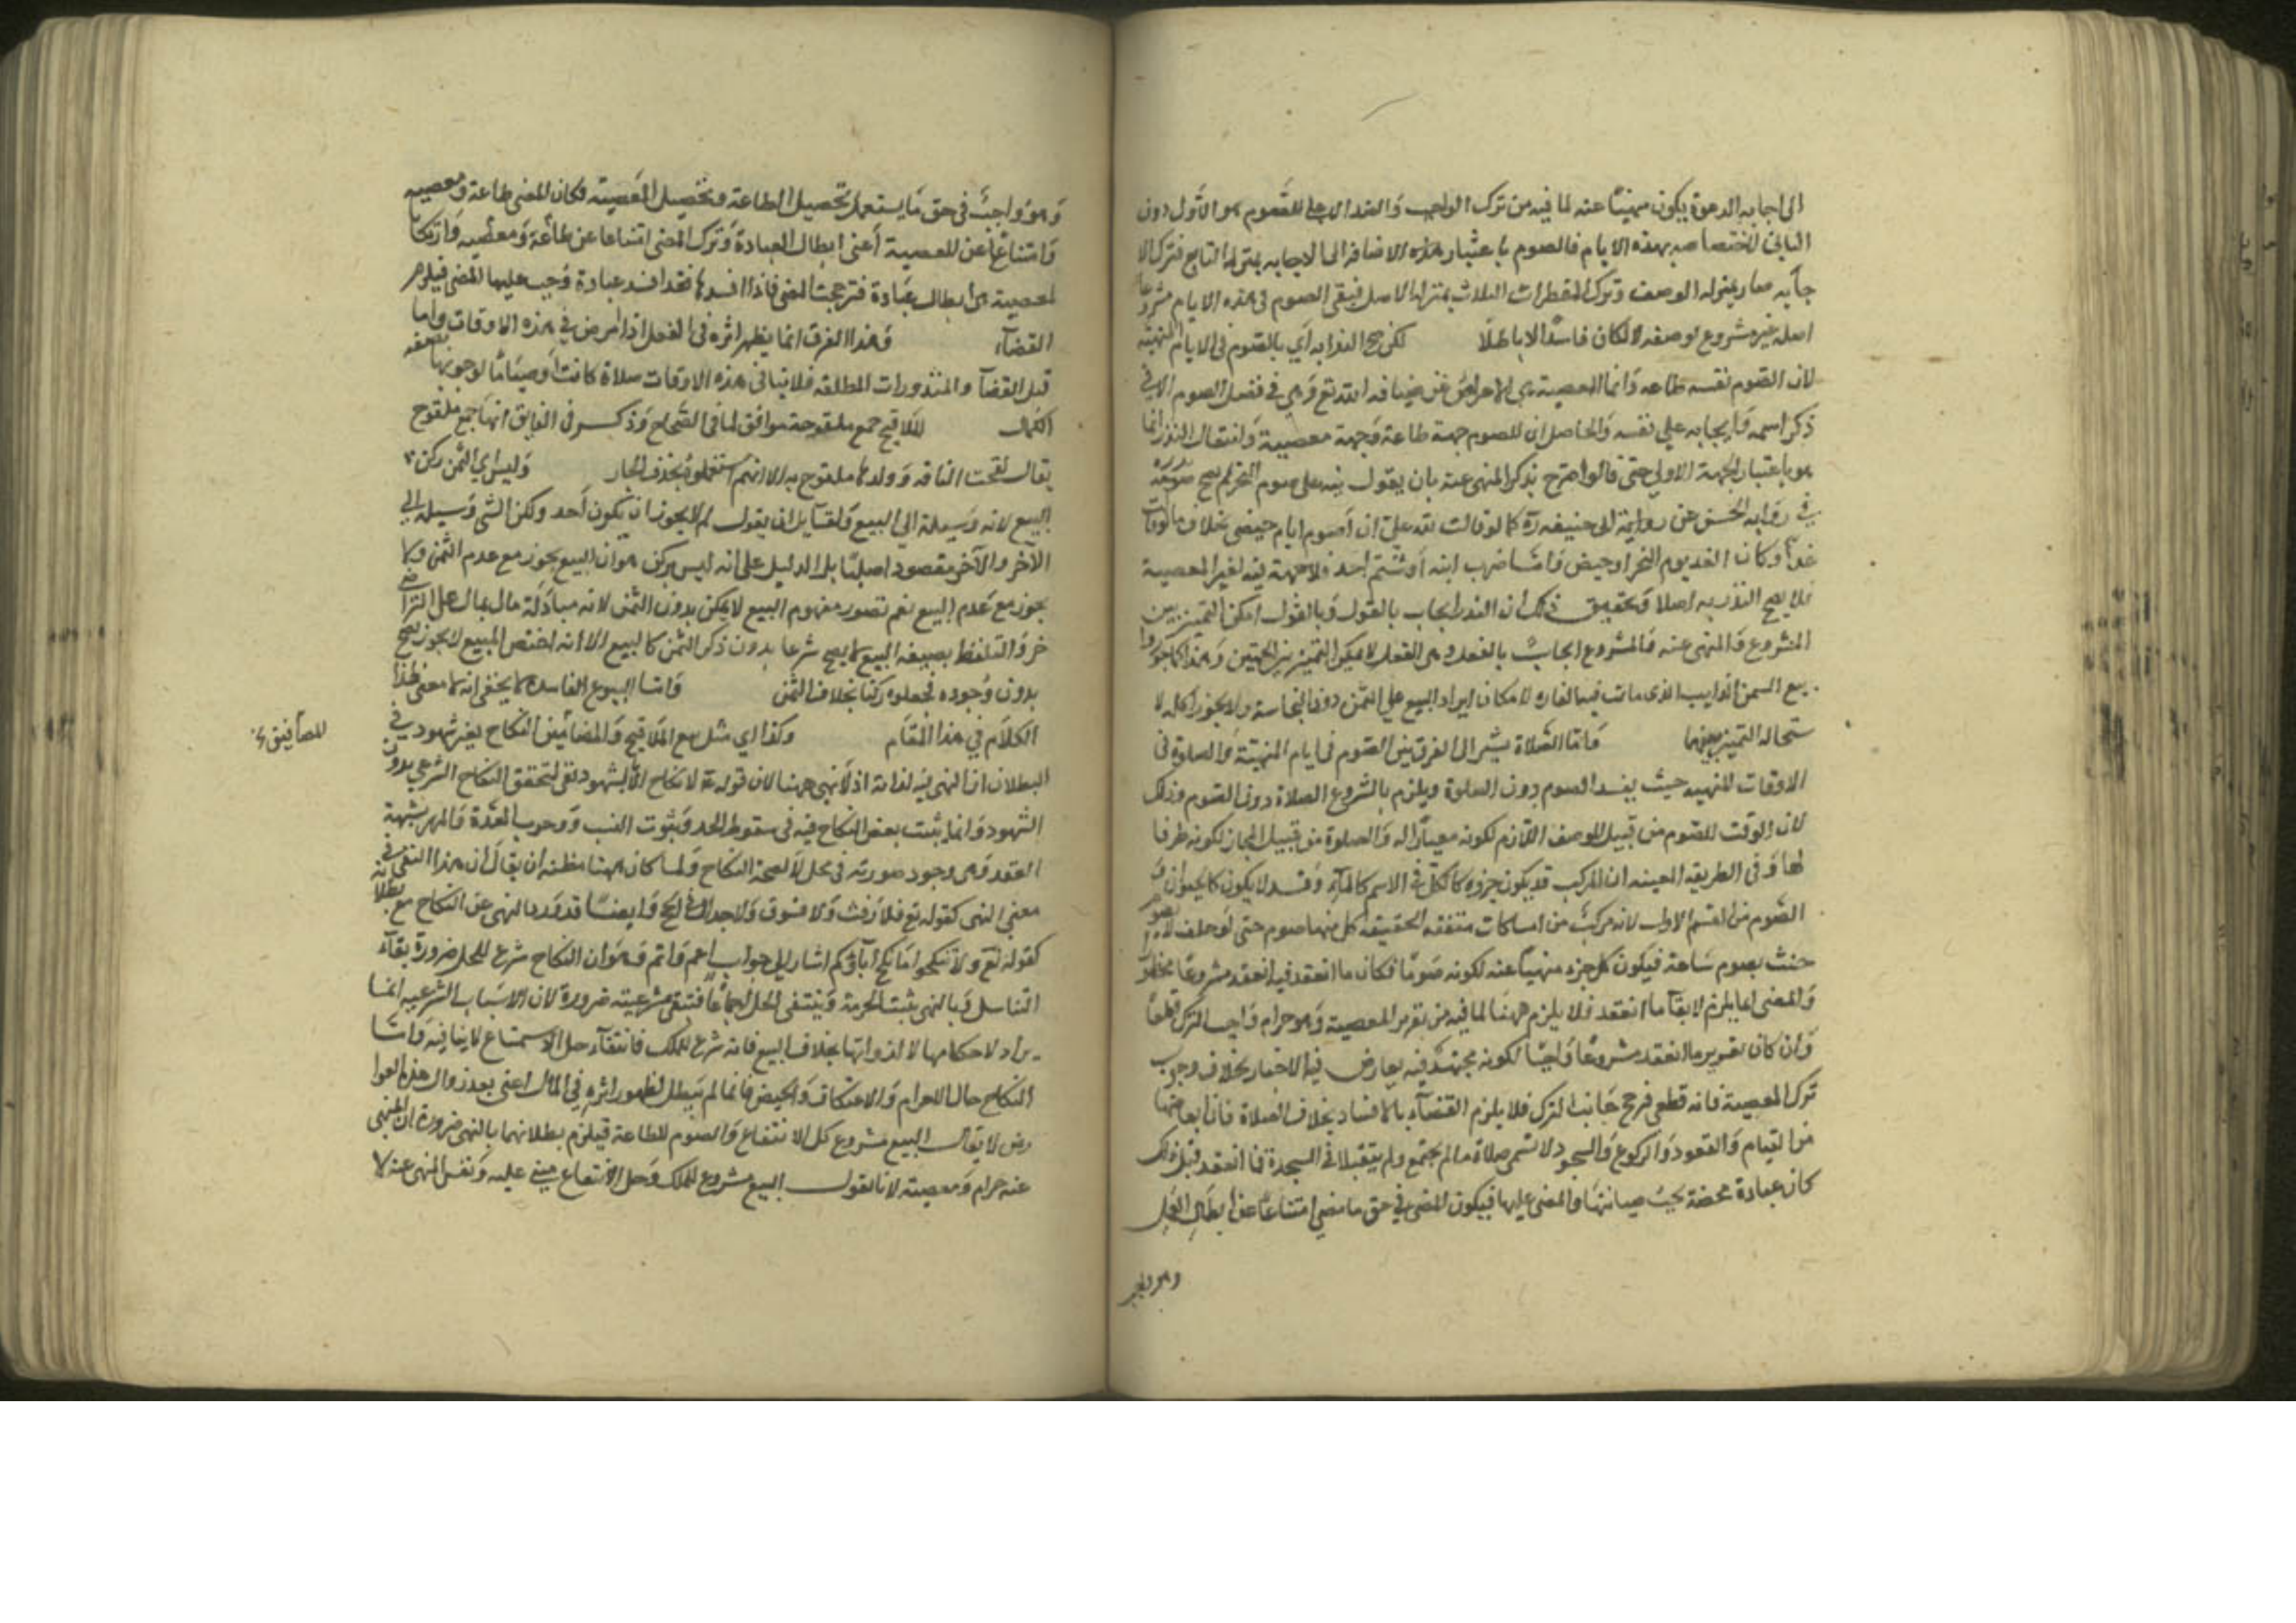 الى اجابه الدعوة يكون منهيًا عنه لما فيه من ترك الواجب والضد الاصلي للصوم هو الاول دون
الثاني لاختصاصه بهذه الايام فالصوم باعتبار هذه الاضافه الى الاجابه بمنزلة التابع فترك الا
جابه صار بمنزله الوصف وترك المفطرات الثلاث بمنزله الاصل فبقي الصوم في هذه الايام مشروعا
اصله غير مشروع لوصفه لكان فاسدًا لا باطلًا لكن صح النذر به اي بالصوم في الايام المنهية
لان الصوم نفسه طاعه وانما المعصية هي الاعراض عن ضيافه الله تع وهي في فصل الصوم لا في
ذكر اسمه وايجابه علي نفسه والحاصل ان للصوم جهة طاعة وجهة معصية وانعقاد النذر انما
هو باعتبار الجهة الاولي حتى قالوا لو صرح بذكر المنهى عنه بان يقول لله على صوم النحر لم يصح نذره
في روايه الحسن عن ابى حنيفه كما لو قالت لله علي ان اصوم ايام حيضي بخلاف ما لو قالت
غدًا وكان الغد يوم النحر او حيض واما ضرب ابنه او شتم احد فلا جهة فيه لغير المعصية
فلا يصح النذر به اصلا وتحقيق ذلك ان النذر ايجاب بالقول وبالقول امكن التمييز بين
المشروع والمنهى عنه والشروع ايجاب بالفعل وفى الفعل لا يمكن التمييز بين الجهتين وهذا كما جوزوا
بيع السمن الذايب الذي ماتت فيه الفاره لامكان ايراد البيع علي السمن دون النجاسة ولا يجوز اكله لا
ستحاله التمييز بينهما واما الصلاة يشير الى الفرق بين الصوم في ايام المنهية والصلوة في
الاوقات المنهيه حيث يفسد الصوم دون الصلوة ويلزم بالشروع الصلاة دون الصوم وذلك
لان الوقت للصوم من قبيل الوصف اللازم لكونه معيارًا له والصلوة من قبيل المجاز لكونه ظرفا
لها وفى الطريقه المعينه ان المركب قد يكون جزوه كالكل في الاسم كالماء وقد لا يكون كالحيوان و
الصوم من القسم الاول لانه مركب من امساكات متفقه الحقيقة كل منها صوم حتى لو حلف لا يصوم
حنث بصوم ساعة فيكون كل جزء منهيًا عنه لكونه صومًا فكان ما انعقد فيه انعقد مشروعًا محظورا
والمضى انما يلزم لابقاء ما انعقد فلا يلزم ههنا لما فيه من تقرير المعصية وهو حرام واجب الترك قطعًا
وان كان تقرير ما انعقد مشروعًا واجبًا لكونه مجتهدًا فيه يعارض فيه الاخبار بخلاف وجوب
ترك المعصية فانه قطعي فرجح جانب الترك فلا يلزم القضاء بالافساد بخلاف الصلاة فان ابعاضها
من القيام والقعود والركوع والسجود لا تسمى صلاة ما لم يجتمع ولم يتقيد بالسجدة فما انعقد قبل ذلك
كان عبادة محضة يجب صيانتها والمضى عليها فيكون المضى في حق ما مضى امتناعًا عن ابطال العمل
وهو واجب في حق ما يستعمل تحصيل الطاعة وتحصيل المعصية فكان المضى طاعة ومعصيه
وامتناعًا عن المعصية أعنى ابطال العبادة وترك المضى امتناعا عن طاعة ومعصيه وارتكابا
لمعصية هى ابطال عبادة فترجحت المضى فاذا افسدها فقد افسد عبادة وجب عليها المضى فيلزم
القضاء وهذا الفرق انما يظهر اثره في النفل اذا امرض في هذه الاوقات واما
قبل القضاء والمنذورات المطلقه فلا يتاتى في هذه الاوقات صلاة كانت او صيامًا لوجوبها بصفه
الكمال الملاقيح جمع ملقوحة موافق لما فى الصحاح وذكر في الفايق انها جمع ملقوح
يقال لقحت الناقه وولدها ملقوح به الا انهم استعملوه بحذف الجار وليس اي الثمن ركن
البيع لانه وسيلة الي البيع ولقايل ان يقول لم لا يجوز ان يكون أحد ركني الشي وسيله الي
الآخر والآخر مقصود اصليًا بل الدليل على انه ليس بركن هو ان البيع يجوز مع عدم الثمن ولا
يجوز مع عدم المبيع نعم تصور مفهوم البيع لا يمكن بدون الثمن لانه مبادلة مال بمال على التراضي
خر والتلفظ بصيغه البيع لا يصح شرعا بدون ذكر الثمن كالبيع الا انه اختص المبيع لا يجوز بيع
بدون وجوده فجعلوه ركنا بخلاف الثمن واما البيوع الفاسدة لا يخفى انه لا معنى لهذا
الكلام في هذا المقام وكذا اي مثل بيع الملاقيح والمضامين النكاح بغير شهود في
البطلان ان النهى فيه لذاته اذ لا نهى ههنا لان قوله لا نكاح الا بشهود نفى لتحقق النكاح الشرعي بدون
الشهود وانما يثبت بعض النكاح فيه في سقوط الحد وثبوت النسب ووجوب العدة والمهر بشبهة
العقد وهى وجود صورته في محل لا لصحة النكاح ولما كان ههنا مظنه ان يقال ان هذا النفى في
معني النهى كقوله تع فلا رفث ولا فسوق ولا جدال في الحج وايضًا قد ورد النهى عن النكاح مع بطلانه
كقوله تع ولا تنكحوا ما نكح آباؤكم اشار الي جواب اعم واتم وهو ان النكاح شرع للحل ضرورة بقاء
التناسل وبالنهى يثبت الحرمة وينتفى الحل اجماعًا فتنتفى مشرعيته ضرورة لان الاسباب الشرعيه انما
يراد لاحكامها لا لذواتها بخلاف البيع فانه شرع للملك فانتفاء حل الاستمتاع لا ينافيه واما
النكاح حال الاحرام والاعتكاف والحيض فانما لم يبطل لظهور اثره في المال اعنى بعد زوال هذه العوا
رض لا يقال البيع مشروع كل الانتفاع والصوم للطاعة فيلزم بطلانهما بالنهى ضرورة ان المنهى
عنه حرام ومعصية لانا نقول البيع مشروع للملك وحل الانتفاع مبنى عليه ونفس المنهى عنه لا